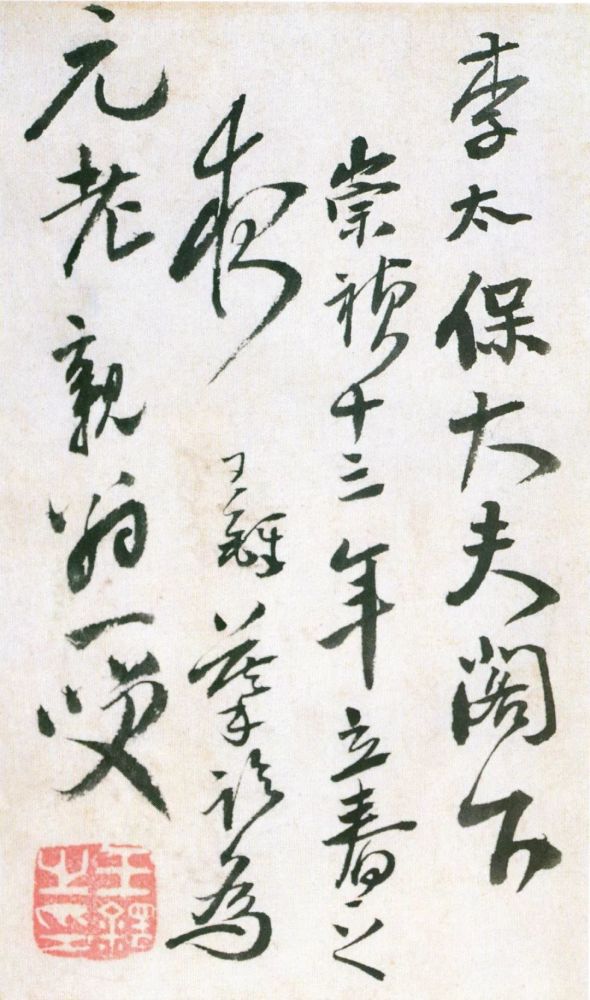 李太保大夫閣下
崇禎十三年立春之
夜王鐸摹臨為
元老親翁一笑
王鐸之印